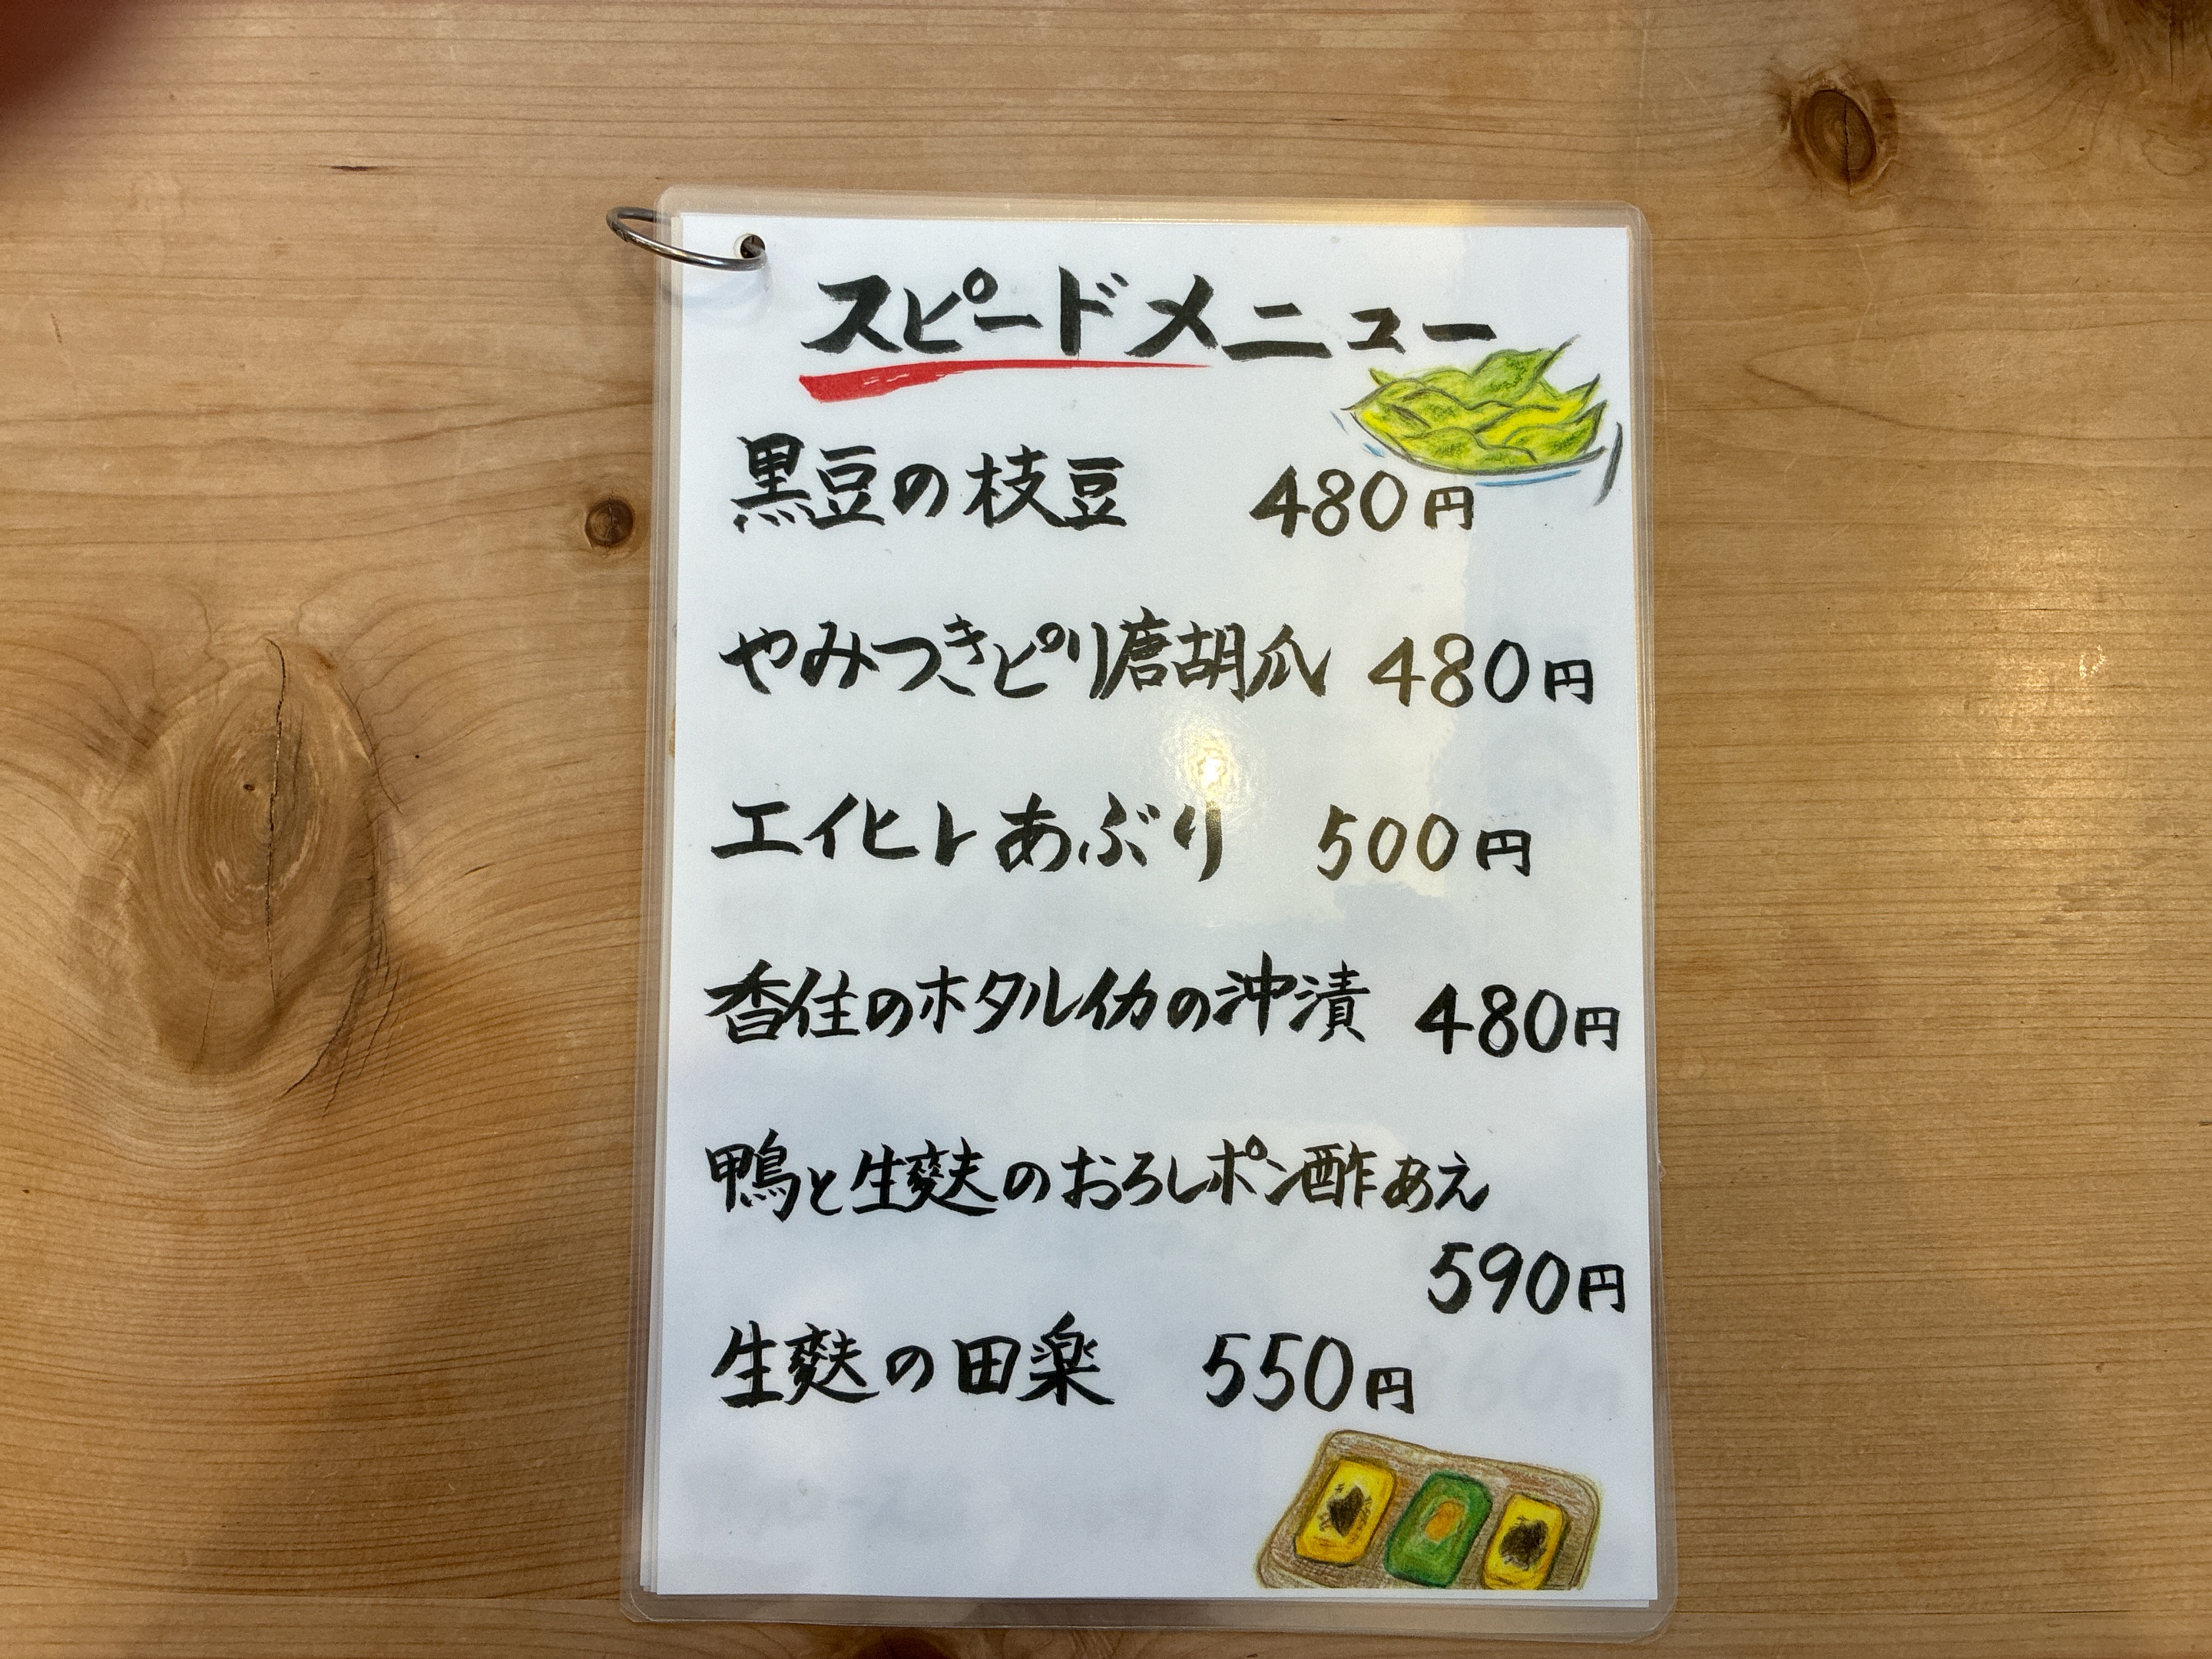 スピードメニュー
黒豆の枝豆 480円
やみつきピリ唐胡瓜 480円
エイヒレあぶり 500円
香住のホタルイカの沖漬 480円
鴨と生麩のおろしポン酢あえ
590円
生麩の田楽 550円